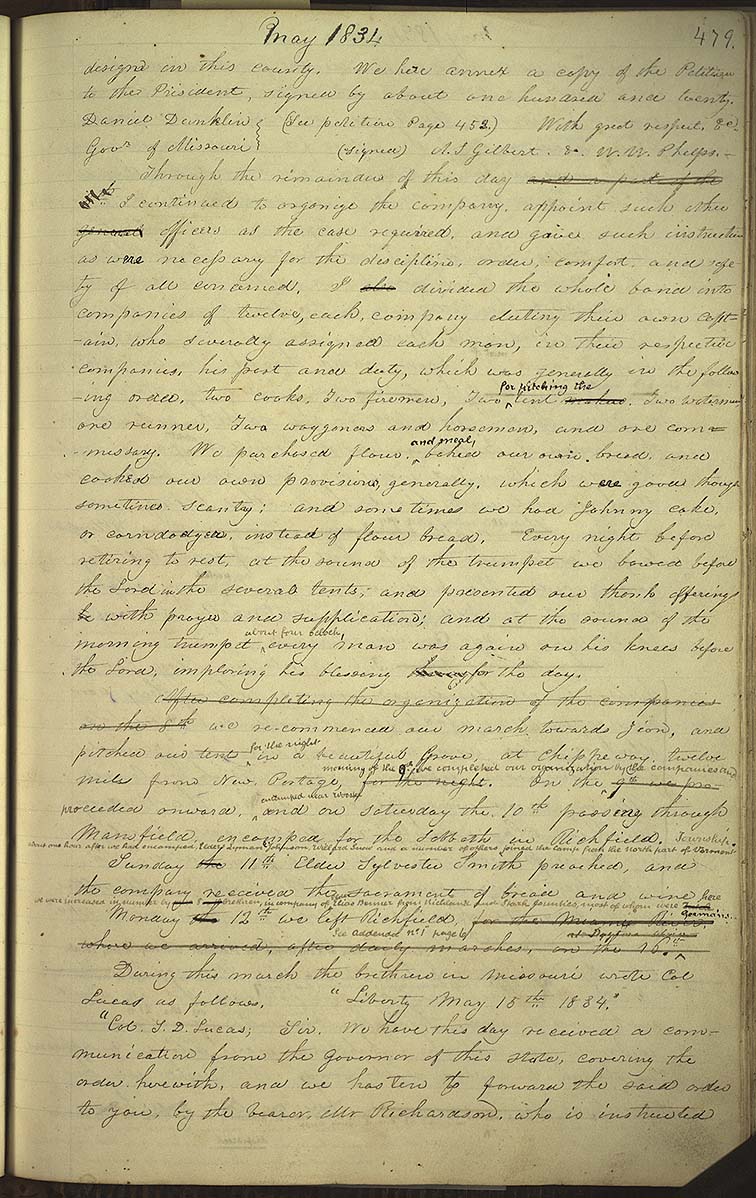 May 1834
479.
designs in this county. We here annex a copy of the Petition
to the President, signed by about one hundred and twenty.
Daniel Dunklin } (See petition Page 452.) With great respect, &c.
Govr of Missouri } (Signed) A. S. Gilbert. &c. W. W. Phelps.—
Through the remainder of this day and a part of the
8th I continued to organize the company, appoint such other
general officers as the case required, and gave such instructions
as were necessary for the discipline, order, comfort and safe
ty of all concerned. I also divided the whole band into
companies of twelve, each company electing their own capt-
-ain, who severally assigned each man, in their respective
companies, his post and duty, which was generally in the follow
for pitching the
-ing order, two cooks, Two firemen, Two tent makers. Two watermen,
one runner, Two waggoners and horsemen, and one com=
and meal,
-missary. We purchased flour, baked our own bread, and
cooked our own provisions, generally, which were good though
sometimes scanty; and sometimes we had Johnny cake,
or corn dodger, instead of flour bread. Every night before
retiring to rest, at the sound of the trumpet we bowed before
the Lord in the several tents, and presented our thank offerings
with prayer and supplication; and at the sound of the
about four oclock,
morning trumpet every man was again on his knees before
the Lord, imploring his blessing for the day.
After completing the organization of the companies
on the 8th we re-commenced our march towards Zion, and
for the night
pitched our tent in a beautiful Grove, at Chippeway twelve
morning of the 9th we completed our organization by the companies and
miles from New Portage, for the night. On the 9th we pro-
encamped near Wooster
proceeded onward, and on Saturday the 10th passing through
Mansfield, encamped for the Sabbath in Richfield. Township.
about one hour after we had encamped, Elders Lyman E. Johnson, Willard Snow and a number of others joined the camp from the north part of Vermont
Sunday the 11th Elder Sylvester Smith preached, and
the company received the sacrament of bread and wine, here
we were increased in number by brethren, in company of Elias Benner from Richland and Stark counties, most of whom were Germans.
Monday the 12th we left Richfield, for the Miami River
See addenda No 1 page 6
where we arrived, after daily marches, on the 16th
During this march the brethren in Missouri wrote Col
Lucas as follows. "Liberty May 15th 1834."
"Col. S. D. Lucas; Sir. We have this day received a com=
munication from the Governor of this State, covering the
order herewith, and we hasten to forward the said order
to you, by the bearer, Mr Richardson, who is instructed